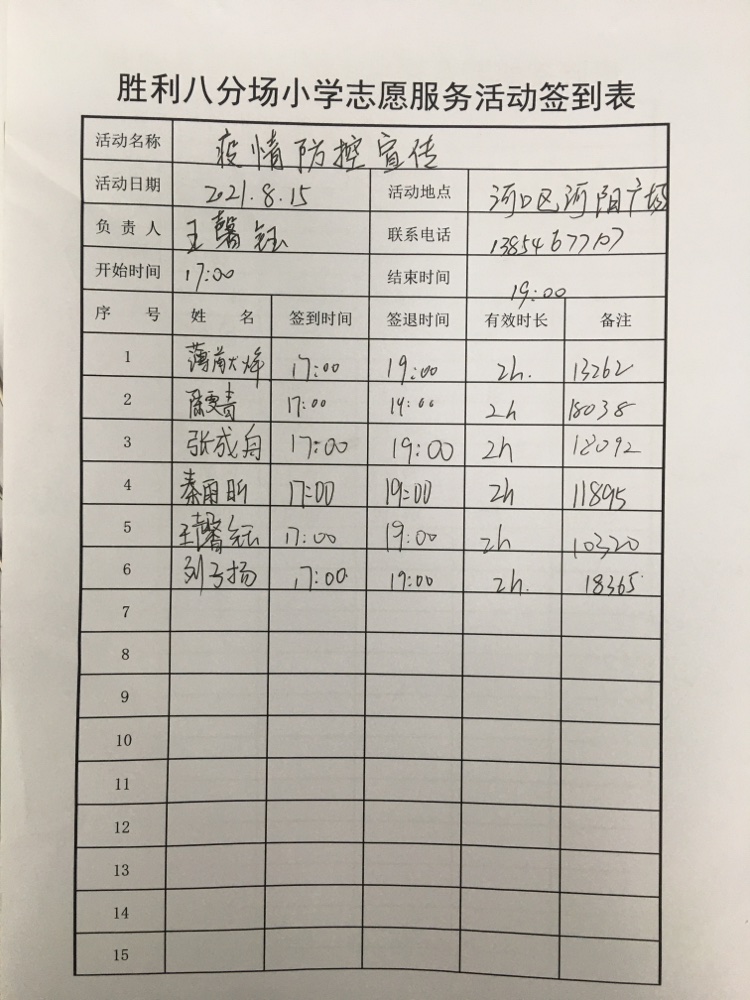 胜利八分场小学志愿服务活动签到表
活动名称 疫情防控宣传
活动日期 2021.8.15 活动地点 河口区河阳广场
负责人 王馨钰 联系电话 13854677107
开始时间 17:00 结束时间 19:00
序号 姓名 签到时间 签退时间 有效时长 备注
1 薄 17:00 19:00 2h. 13262
2 17:00 19:00 2h 18038
3 张成舟 17:00 19:00 2h 12092
4 秦雨昕 17:00 19:00 2h 11895
5 王馨钰 17:00 19:00 2h 10320
6 刘子扬 17:00 19:00 2h. 18365
7
8
9
10
11
12
13
14
15